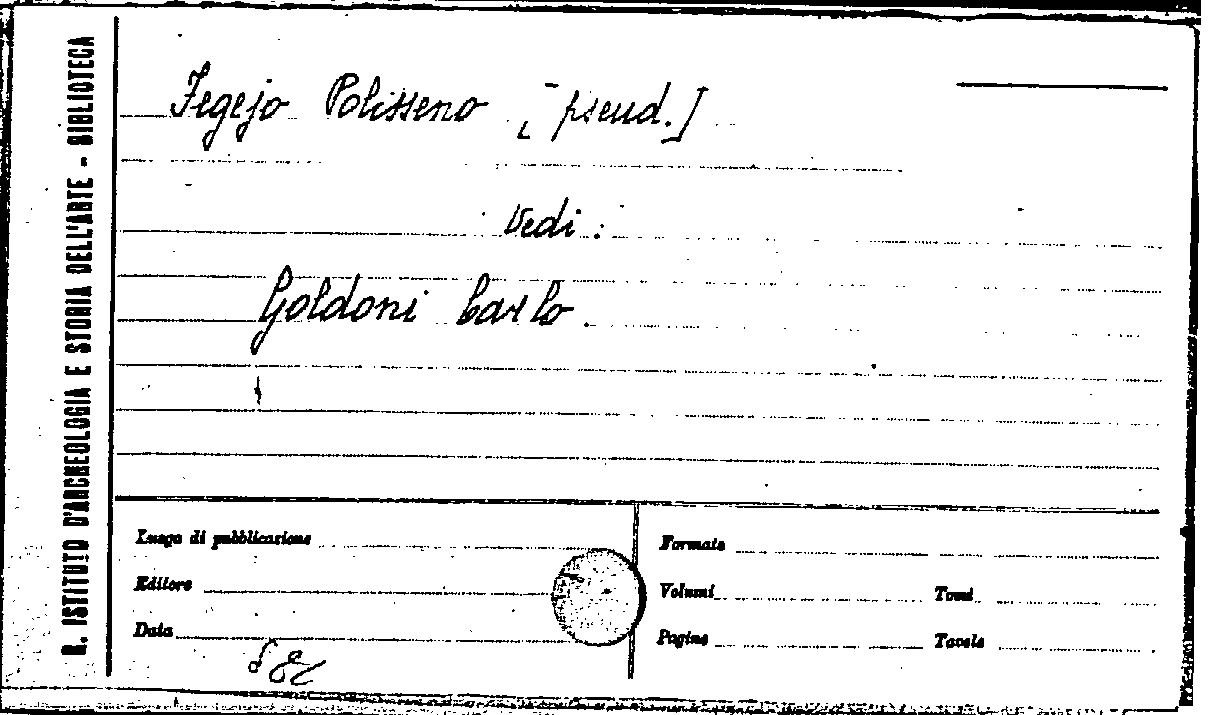 R. ISTITUTO D'ARCHEOLOGIA E STORIA DELL'ARTE - BIBLIOTECA
Fegejo Polisseno [pseud.]
Vedi:
Goldoni Carlo
Luogo di pubblicazione
Editore
Data
Formato
Volumi Tomi
Pagine Tavole